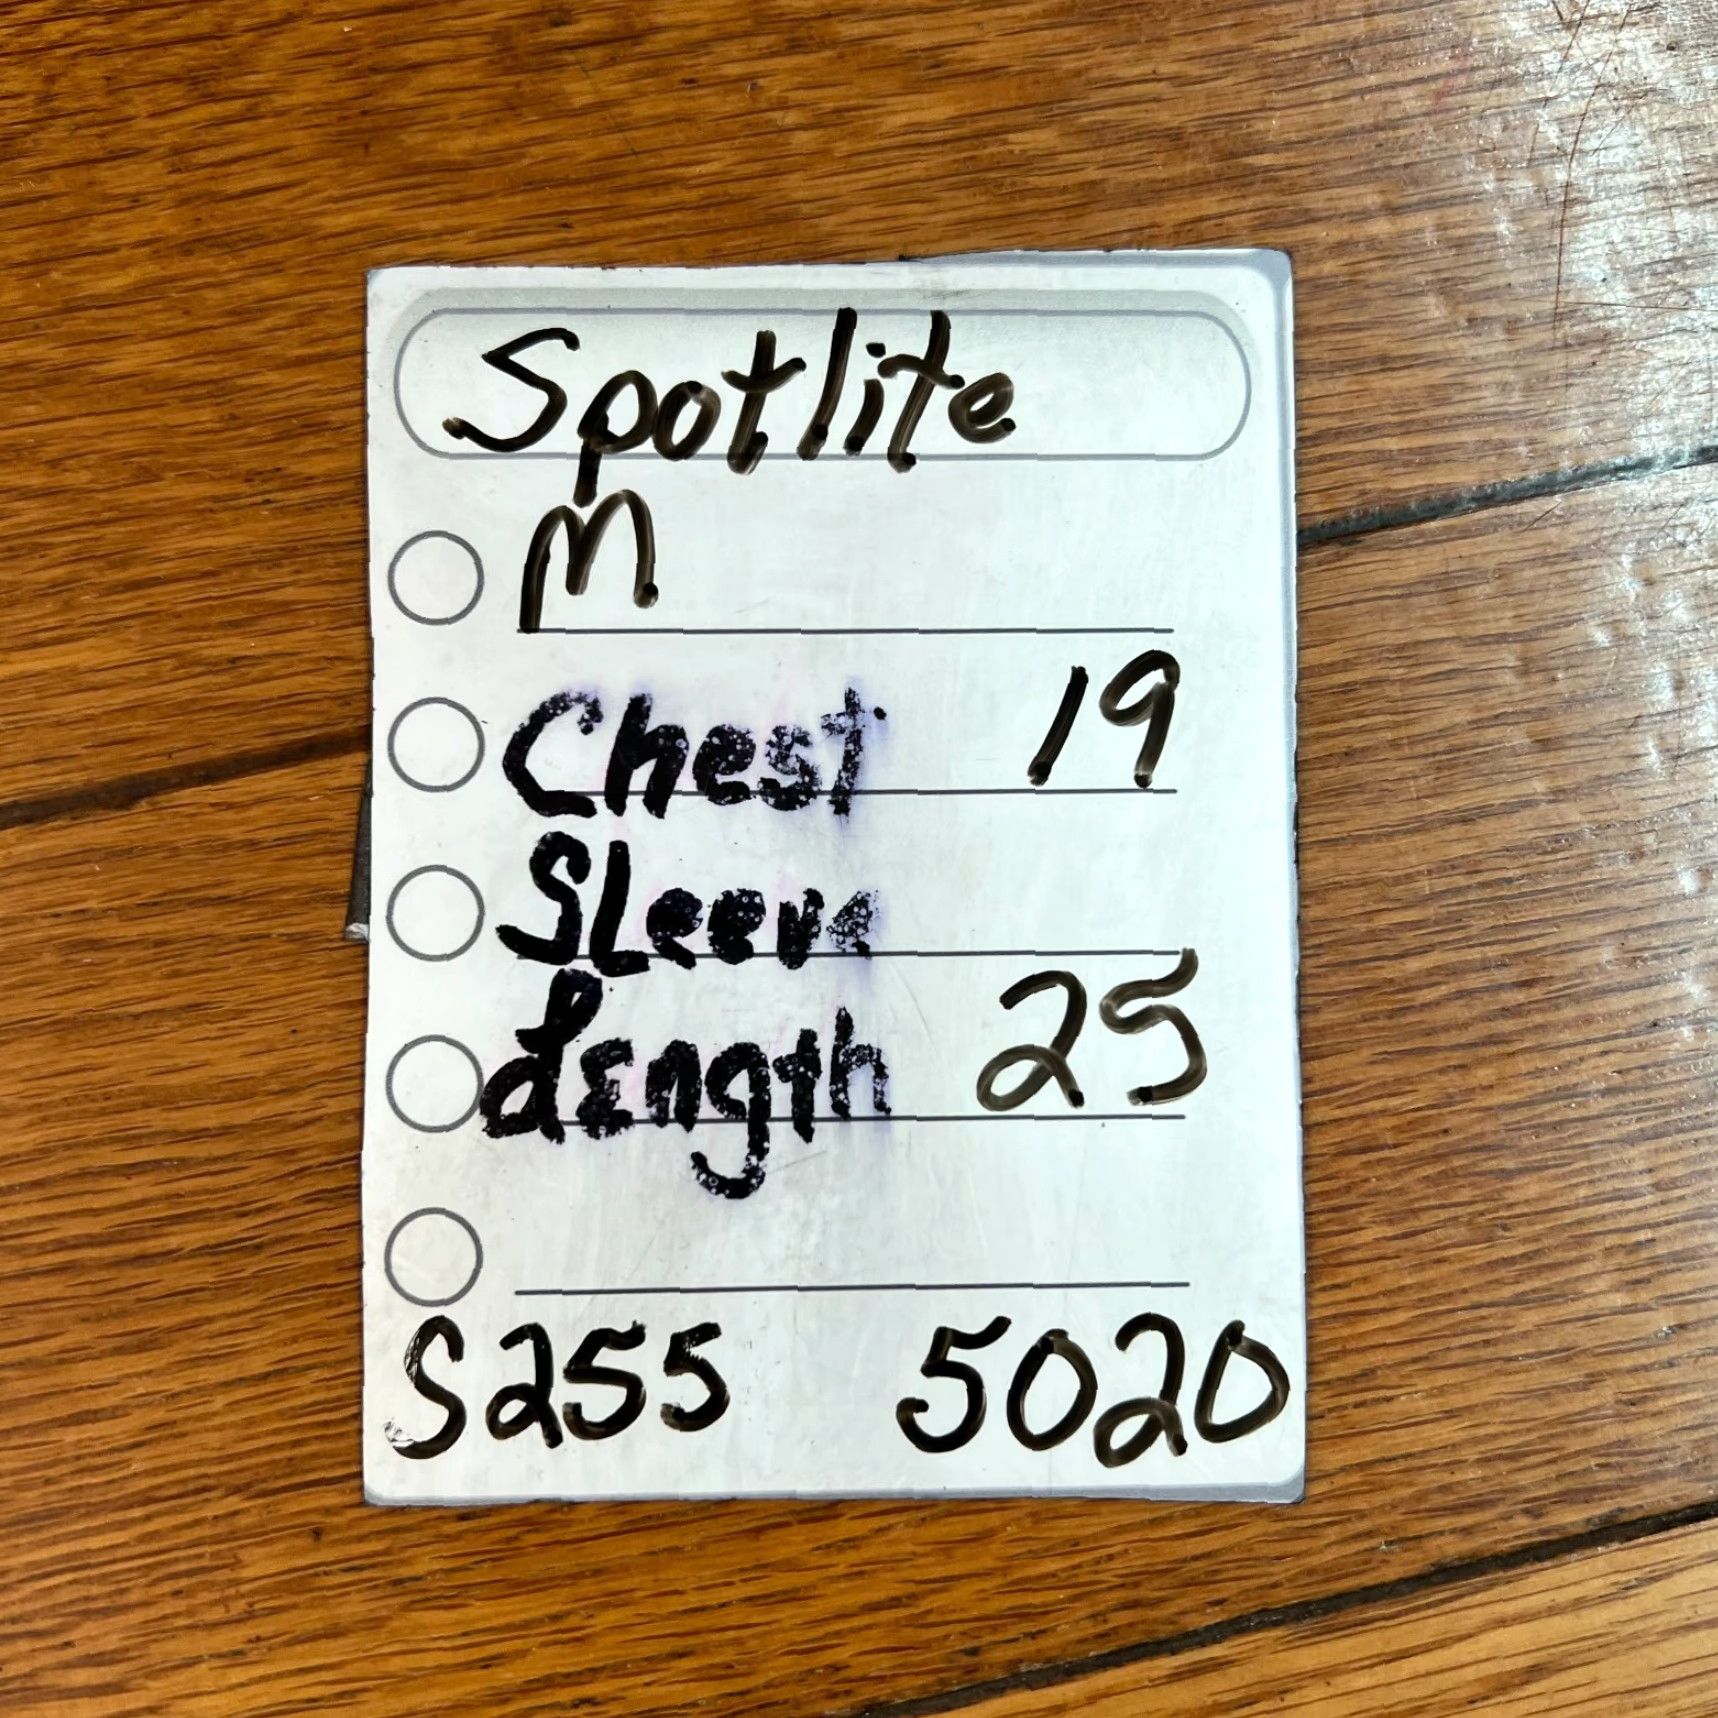 Spotlite
M
Chest 19
SLeeve
Length 25
S255 5020